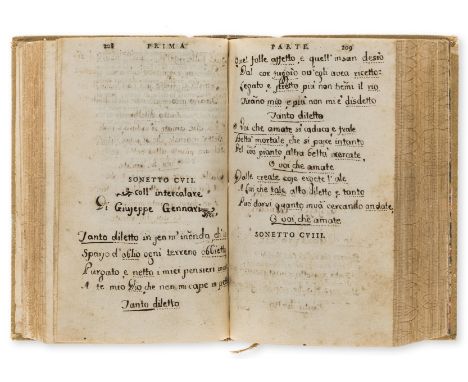 208 PRIMA
SONETTO CVII.
coll' intercalare
Di Giuseppe Gennari
Tanto diletto in sen m'
Sparso d'oblio ogni terreno obbietto
Purgato e netto i miei pensieri
A te mio Dio che non mi cape in
Tanto diletto
PARTE 209
Quel folle affetto, e quell' insan desio
Dal cor ov' egli avea ricetto
Legato e stretto più non tiemmi il rio
Tirano mio, e più non m'è disdetto
Tanto diletto
O Voi che amate sì caduca e frale
beltà mortale, che si pasce intanto
Del pianto, altra beltà cercate
O voi che amate
Dalle create cose ergete l'ale
A fin che tale alto diletto e tanto
Può darvi quanto cercando andate
O voi che amate
SONETTO CVIII.